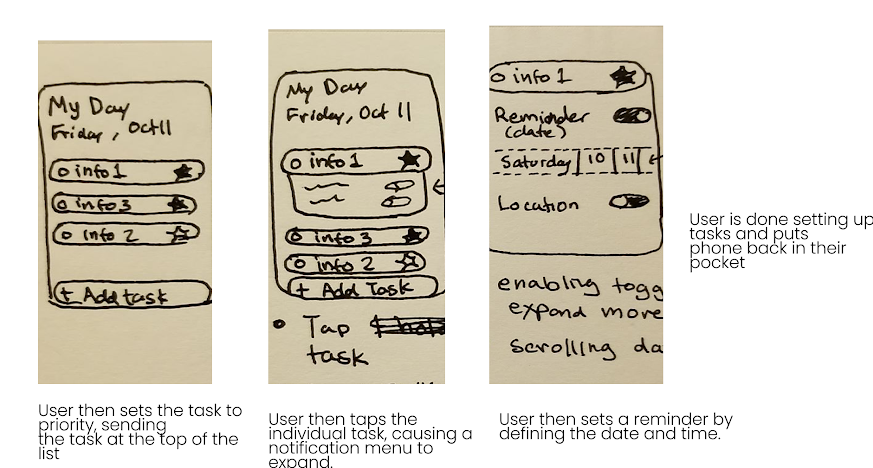 My Day
Friday, Oct 11
info 1
info 3
info 2
+ Add task
User then sets the task to
priority, sending
the task at the top of the
list
My Day
Friday, Oct 11
info 1
info 3
info 2
+ Add Task
Tap
task
User then taps the
individual task, causing a
notification menu to
expand.
info 1
Reminder
(date)
Saturday 10 11
Location
enabling togg
expand more
scrolling da
User then sets a reminder by
defining the date and time.
User is done setting up
tasks and puts
phone back in their
pocket